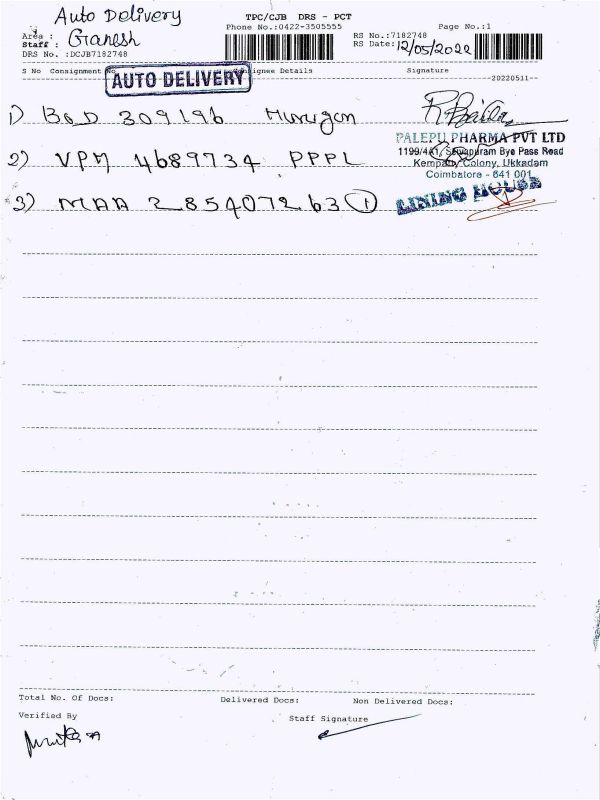 Auto Delivery
TPC/CJB DRS - PCT
Phone No.:0422-3505555
Page No.:1
Area :
Staff : Ganesh
DRS No. :DCJB7182748
RS No.:7182748
RS Date: 12/05/2022
S No Consignment No Consignee Details Signature
AUTO DELIVERY
--20220511--
1) BOD 309196 Murugan
PALEPU PHARMA PVT LTD
1199/4A1, Sivapuram Bye Pass Road
Kempatty Colony, Ukkadam
Coimbatore - 641 001
2) VPM 4689734 PPPL
3) MAA 285407263 (1)
LINING HOUSE
Total No. Of Docs: Delivered Docs: Non Delivered Docs:
Verified By Staff Signature